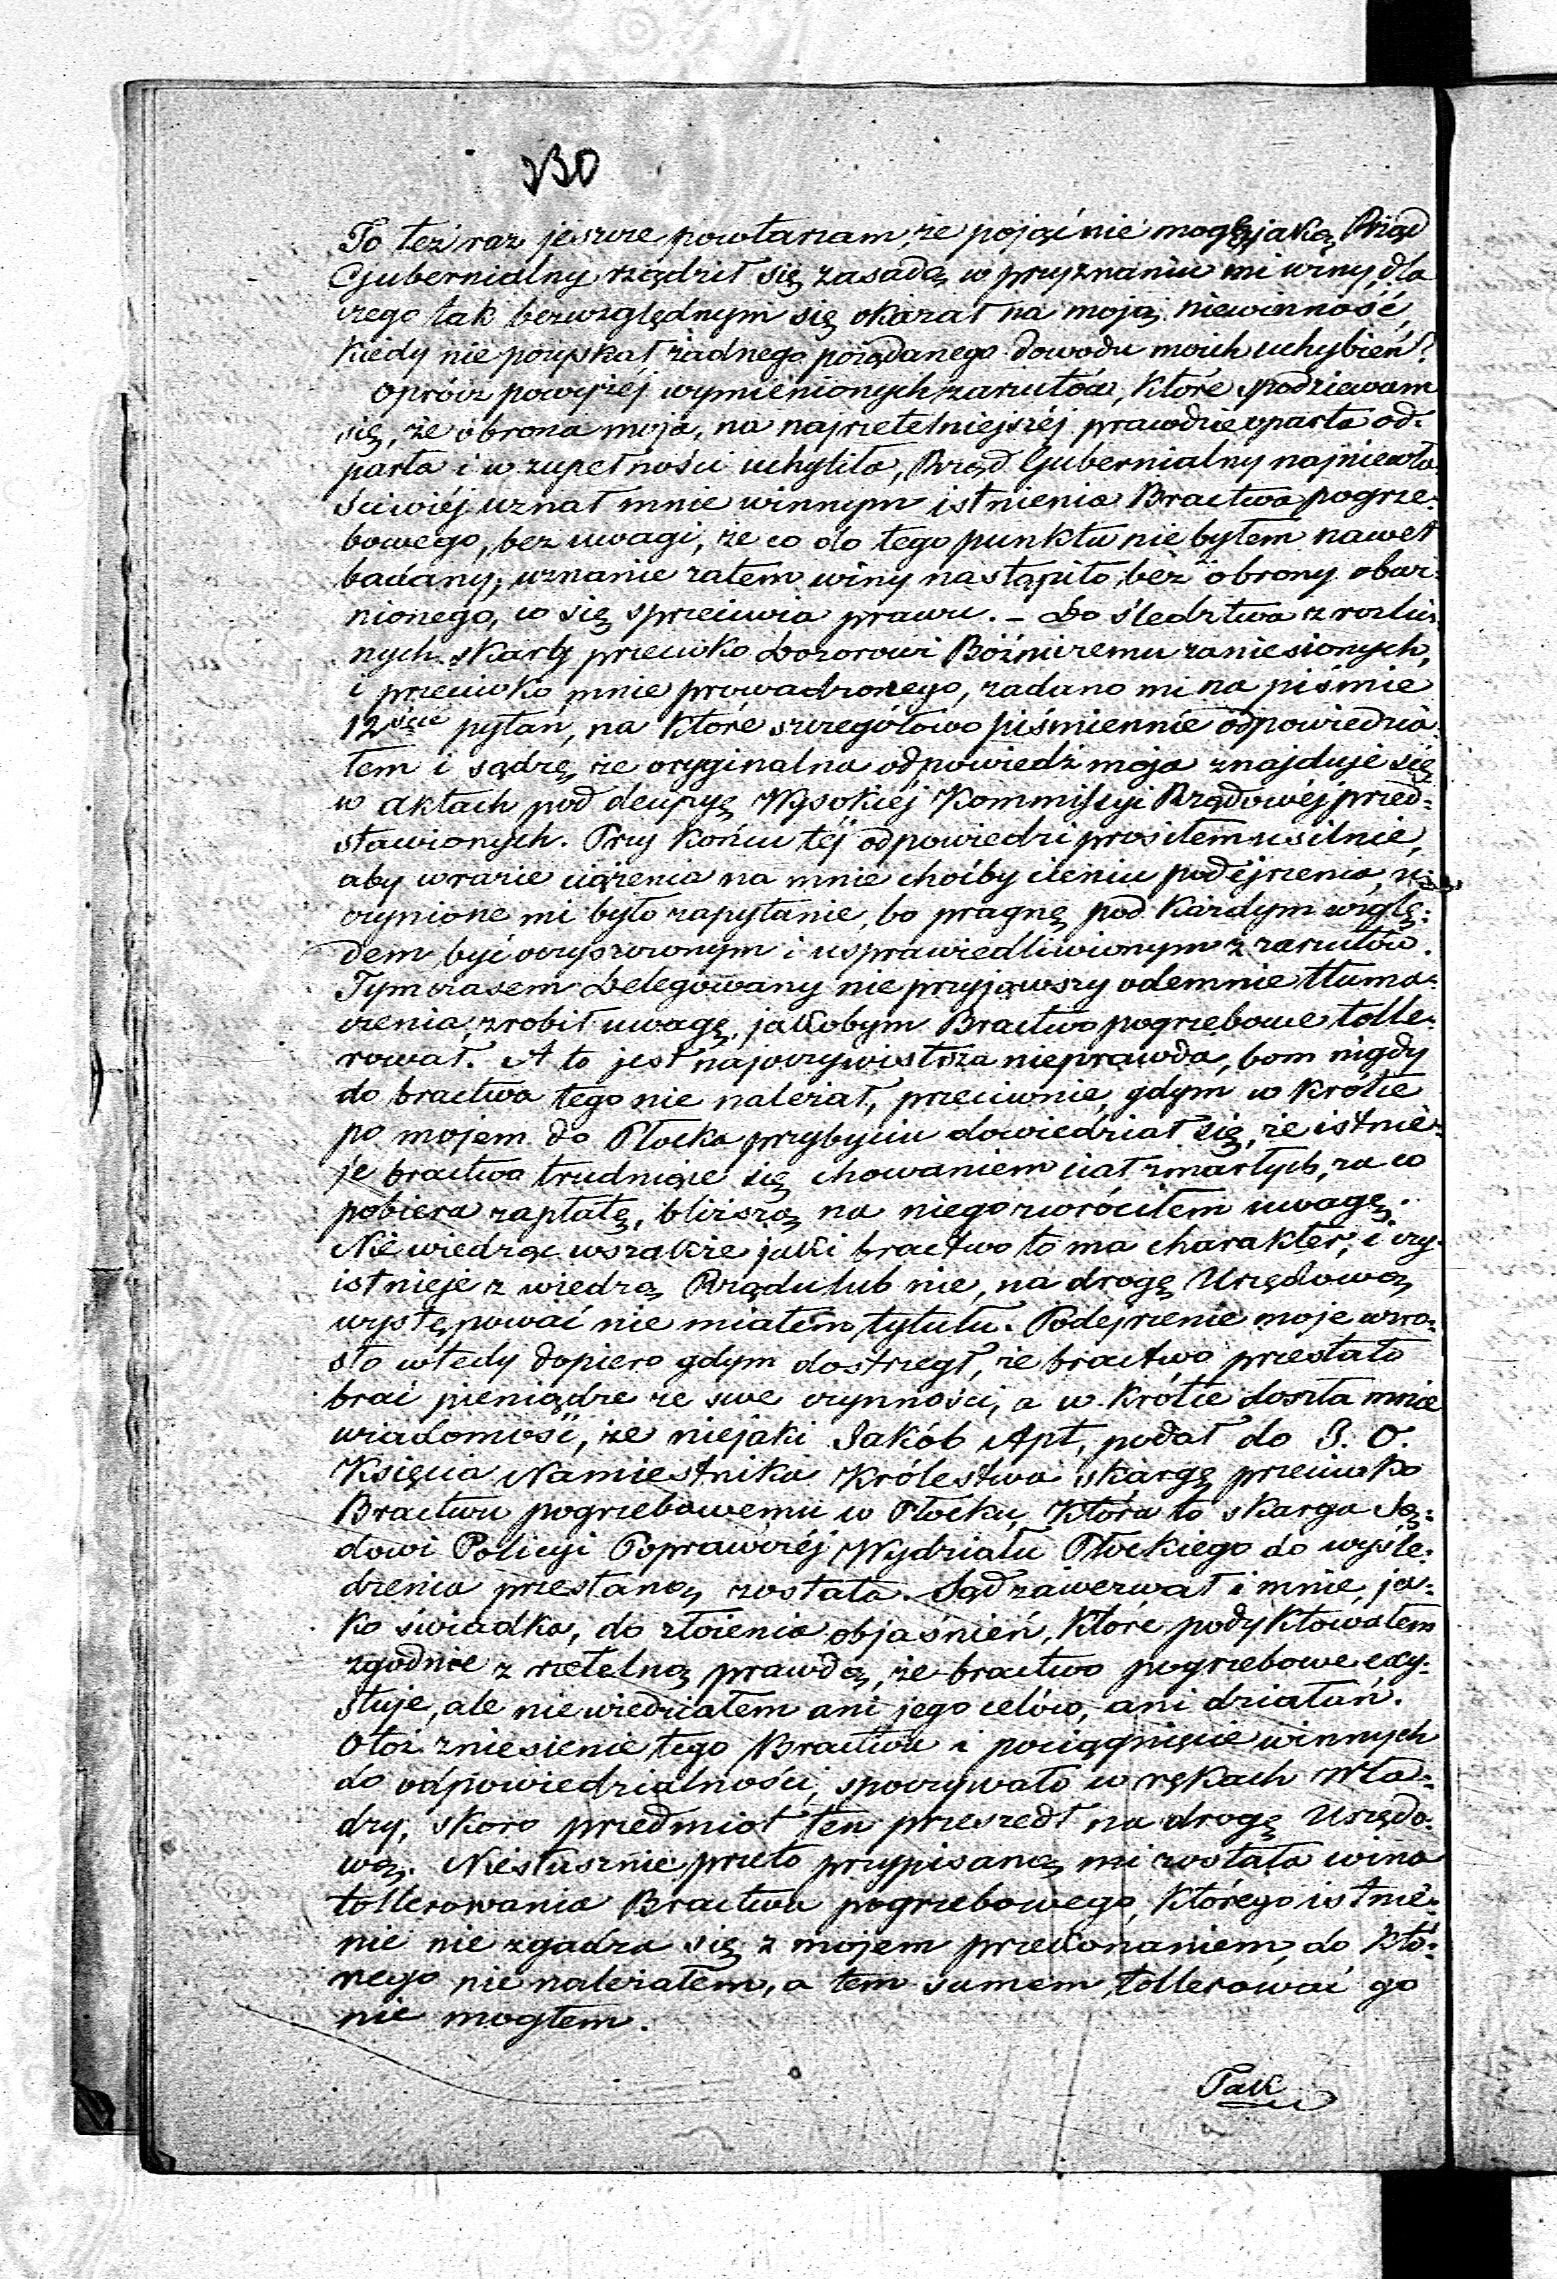 230
To też raz jeszcze powtarzam, że pojąć nie mogę jaką Rząd
Gubernialny rządził się zasadą w przyznaniu mi winy, dla
czego tak bezwzględnym się okazał na moją niewinność,
kiedy nie pozyskał żadnego pożądanego dowodu moich uchybień?
Oprócz powyżéj wymienionych zarzutów, które spodziewam
się, że obrona moja, na najrzetelniejszéj prawdzie oparta od-
parła i w zupełności uchyliła, Rząd Gubernialny najniewła-
ściwiéj uznał mnie winnym istnienia Bractwa pogrze-
bowego, bez uwagi, że co do tego punktu nie byłem nawet
badany, uznanie zatem winy nastąpiło bez obrony obwi-
nionego, co się sprzeciwia prawu. – Do śledztwa z rozlicz-
nych skarg przeciwko Dozorowi Bóżniczemu zaniesionych,
i przeciwko mnie prowadzonego, zadano mi na piśmie
12ście pytań, na które szczegółowo piśmiennie odpowiedzia-
łem i sądzę, że oryginalna odpowiedź moja znajduje się
w aktach pod decyzyę Wysokiéj Kommissyi Rządowéj przed-
stawionych. Przy końcu téj odpowiedzi prosiłem usilnie,
aby w razie ciążenia na mnie choćby cieniu podejrzenia, u-
czynione mi było zapytanie, bo pragnę pod każdym wzglę-
dem być oczyszczonym i usprawiedliwionym z zarzutów.
Tymczasem Delegowany nie przyjąwszy odemnie tłuma-
czenia, zrobił uwagę, jakobym Bractwo pogrzebowe tolle-
rował. A to jest najoczywistsza nieprawda, bom nigdy
do bractwa tego nie należał, przeciwnie, gdym w krótce
po mojem do Płocka przybyciu dowiedział się, że istnie-
je bractwo trudniące się chowaniem ciał zmarłych, za co
pobiera zapłatę, bliższą na niego zwróciłem uwagę.
Nie wiedząc wszakże jaki bractwo to ma charakter, i czy
istnieje z wiedzą Rządu lub nie, na drogę Urzędową
występować nie miałem tytułu. Podejrzenie moje wzro-
sło wtedy dopiero gdym dostrzegł, że bractwo przestało
brać pieniądze ze swe czynności, a w krótce doszła mnie
wiadomość, że niejaki Jakób Apt, podał do J. O.
Księcia Namiestnika Królestwa skargę przeciwko
Bractwu pogrzebowemu w Płocku, która to skarga Są-
dowi Policyi Poprawczéj Wydziału Płockiego do wyśle-
dzenia przesłaną została. Sąd zawezwał i mnie, ja-
ko świadka, do złożenia objaśnień, które podyktowałem
zgodnie z rzetelną prawdą, że bractwo pogrzebowe exy-
stuje, ale nie wiedziałem ani jego celów, ani działań.
Otóż zniesienie tego Bractwa i pociągnięcie winnych
do odpowiedzialności, spoczywało w rękach Wła-
dzy, skoro przedmiot ten przeszedł na drogę Urzędo-
wą. Niesłusznie przeto przypisaną mi została wina
tollerowania Bractwa pogrzebowego, którego istnie-
nie nie zgadza się z mojem przekonaniem, do któ-
rego nie należałem, a tem samem tollerować go
nie mogłem.
Tak